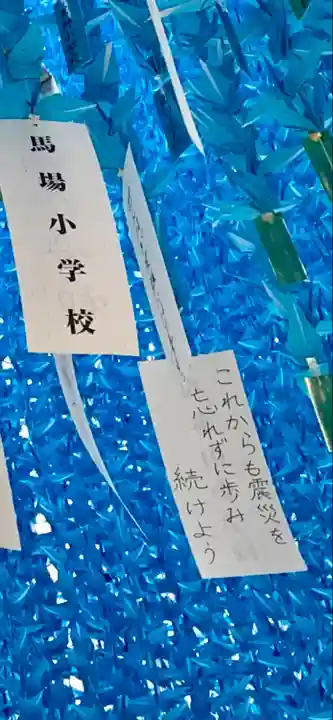 馬場小学校
これからも震災を
忘れずに歩み
続けよう